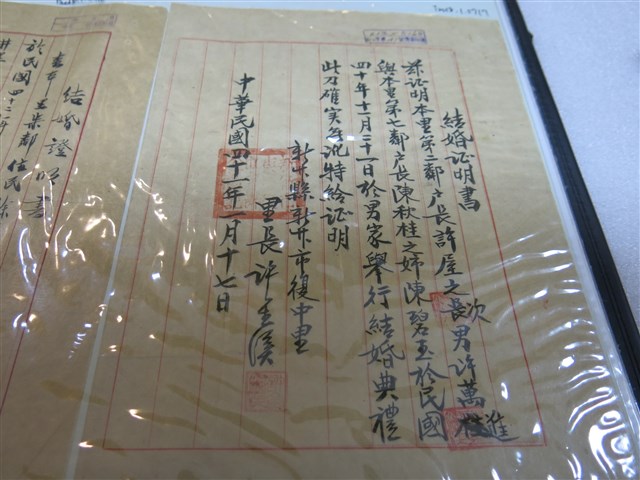 結婚证明書
茲证明本里第二鄰户長許屋之長次男許萬桂進
與本里第七鄰户長陳秋桂之姉陳碧玉於民國
四十年十二月二十一日於男家舉行結婚典禮
此乃確実無訛特給证明
新竹縣新竹市復中里
里長许金溪
中華民國四十一年一月十七日
結婚證明書
鄰住民徐
於民國四十二年